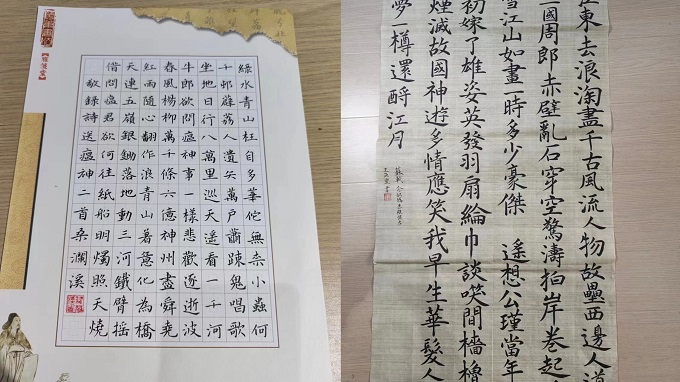 綠水青山枉自多華佗無柰小蟲何
千邨薜荔人遺矢萬戶蕭疎鬼唱歌
坐地日行八萬里巡天遥看一千河
牛郎欲問瘟神事一樣悲歡逐逝波
春風楊柳萬千條六億神州盡舜堯
紅雨隨心翻作浪青山著意化為橋
天連五嶺銀鋤落地動三河鐵臂搖
借問瘟君欲何往紙船明燭照天燒
敬錄詩送瘟神二首桑瀾溪
江東去浪淘盡千古風流人物故壘西邊人道
三國周郎赤壁亂石穿空驚濤拍岸卷起
雪江山如畫一時多少豪傑 遥想公瑾當年
初嫁了雄姿英發羽扇綸巾談笑間檣櫓
煙滅故國神遊多情應笑我早生華髮人
夢一樽還酹江月
蘇軾 念奴嬌赤壁懷古